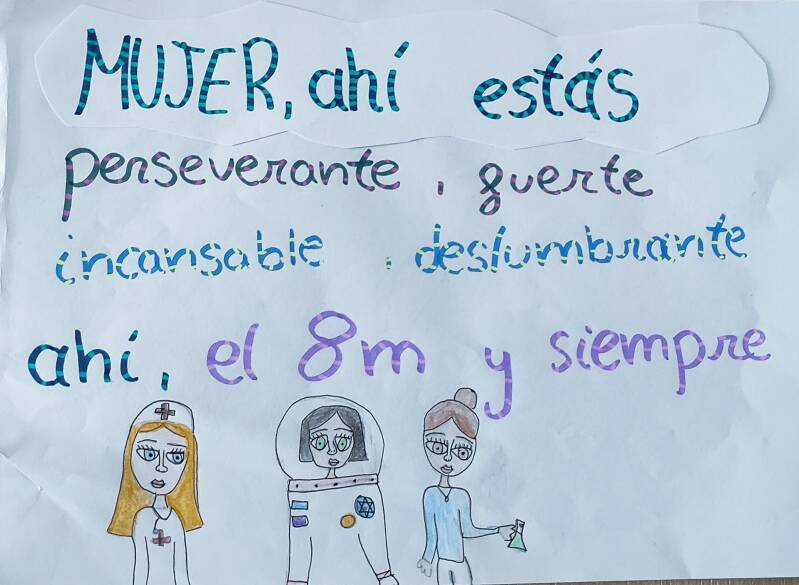 MUJER, ahí estás
perseverante, fuerte
incansable, deslumbrante
ahí, el 8m y siempre